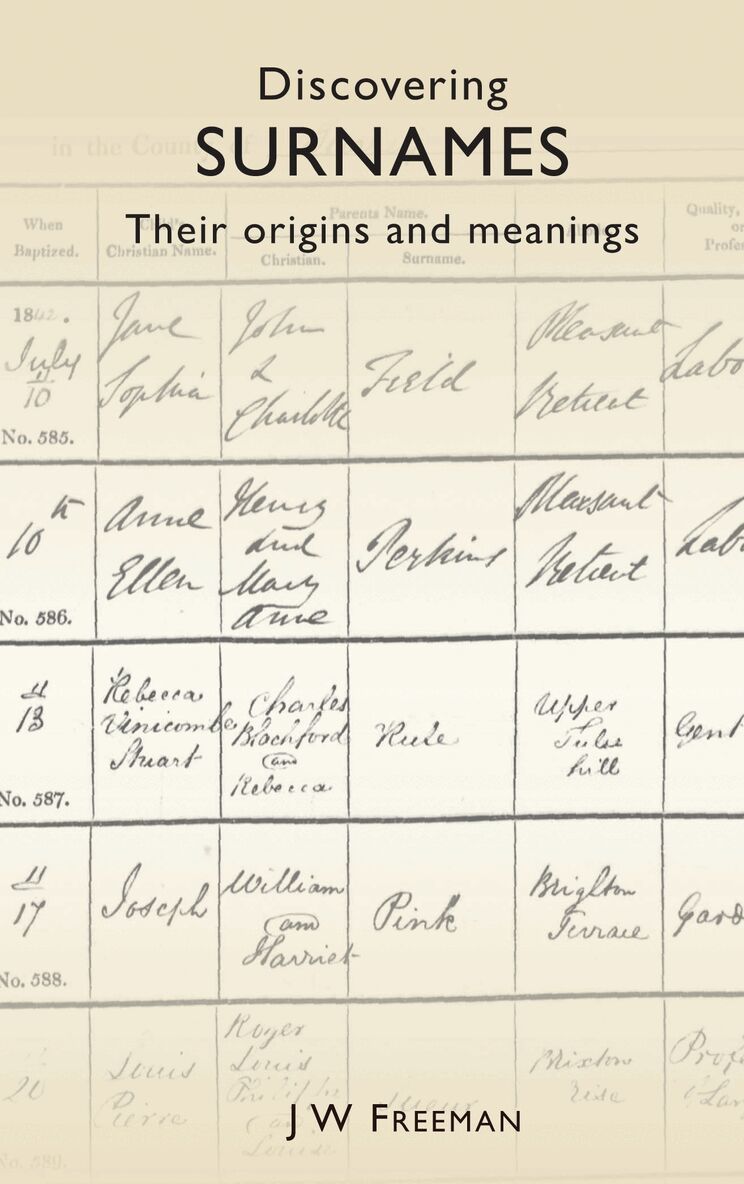 Discovering
SURNAMES
Their origins and meanings
in the County of
When
Baptized.
Child's
Christian Name.
Parents Name.
Christian.
Surname.
Quality,
or
Profes
1842.
July
10
No. 585.
Jane
Sophia
John
&
Charlotte
Field
Pleasant
Retreat
Labo
10th
No. 586.
Anne
Ellen
Henry
and
Mary
Anne
Perkins
Pleasant
Retreat
Labo
"
13
No. 587.
Rebecca
Vinicombe
Stuart
Charles
Blachford
and
Rebecca
Upper
Tulse
hill
Gent
"
17
No. 588.
Joseph
William
and
Harriet
Pink
Brighton
Terrace
Gard
20
No. 589.
Louis
Pierre
Roger
Louis
Philippe
and
Louise
Brixton
rise
Prof
J W FREEMAN